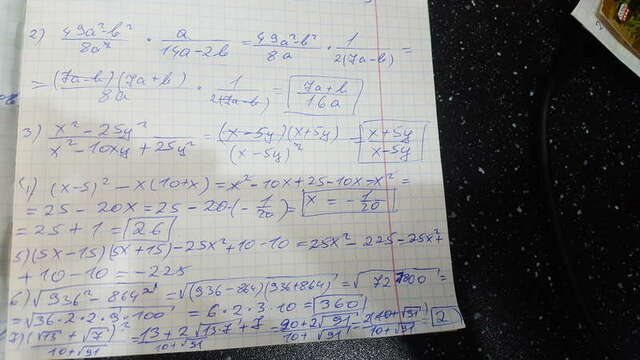 2) (49a²-b²)/(8a²) · a/(14a-2b) = (49a²-b²)/(8a) · 1/(2(7a-b)) =
= ((7a-b)(7a+b))/(8a) · 1/(2(7a-b)) = (7a+b)/(16a)
3) (x²-25y²)/(x²-10xy+25y²) = ((x-5y)(x+5y))/((x-5y)²) = (x+5y)/(x-5y)
4) (x-5)² - x(10+x) = x²-10x+25-10x-x² =
= 25 - 20x = 25 - 20·(-1/20) = x = -1/20
= 25 + 1 = 26
5) (5x-15)(5x+15) - 25x² + 10 - 10 = 25x² - 225 - 25x² +
+ 10 - 10 = -225
6) √(936² - 864²) = √((936-864)(936+864)) = √(72·1800) =
= √(36·2·2·9·100) = 6·2·3·10 = 360
7) (√13 + √7)²/(10+√91) = (13+2√(13·7)+7)/(10+√91) = (20+2√91)/(10+√91) = 2(10+√91)/(10+√91) = 2